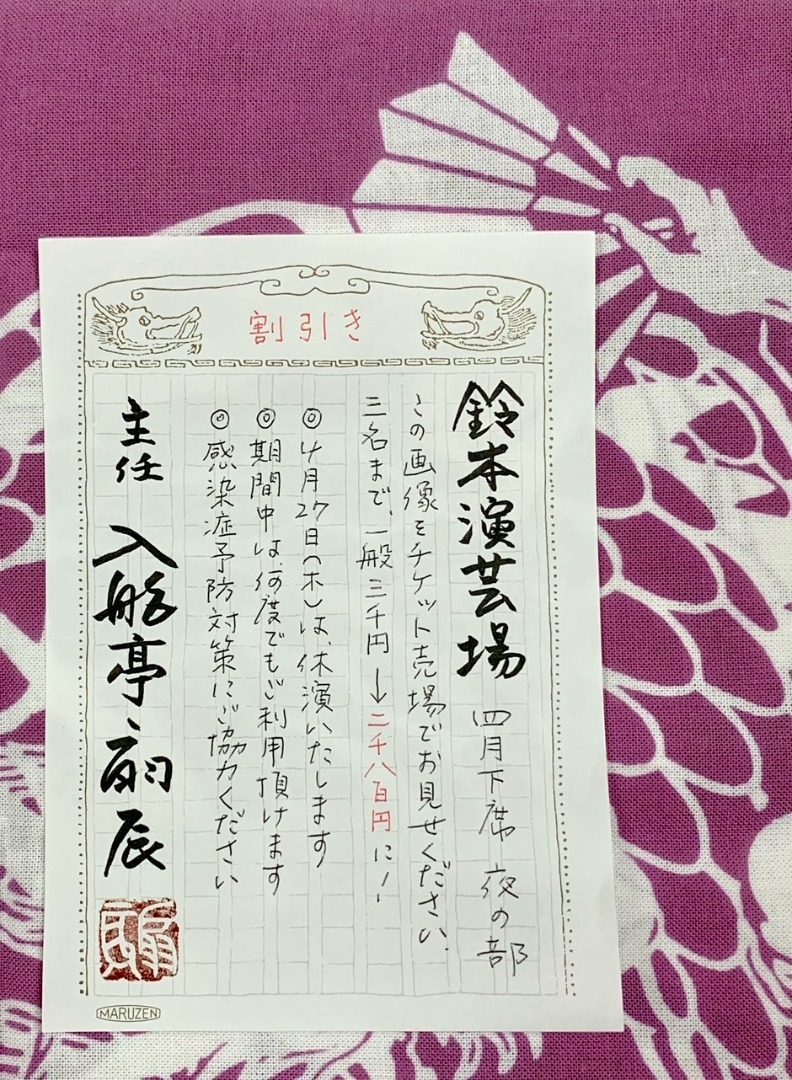 割引き
鈴本演芸場 四月下席 夜の部
この画像をチケット売場でお見せください、
三名まで、一般三千円→二千八百円に！
◎4月27日(木)は、休演いたします
◎期間中は、何度でもご利用頂けます
◎感染症予防対策にご協力ください
主任 入船亭扇辰
MARUZEN